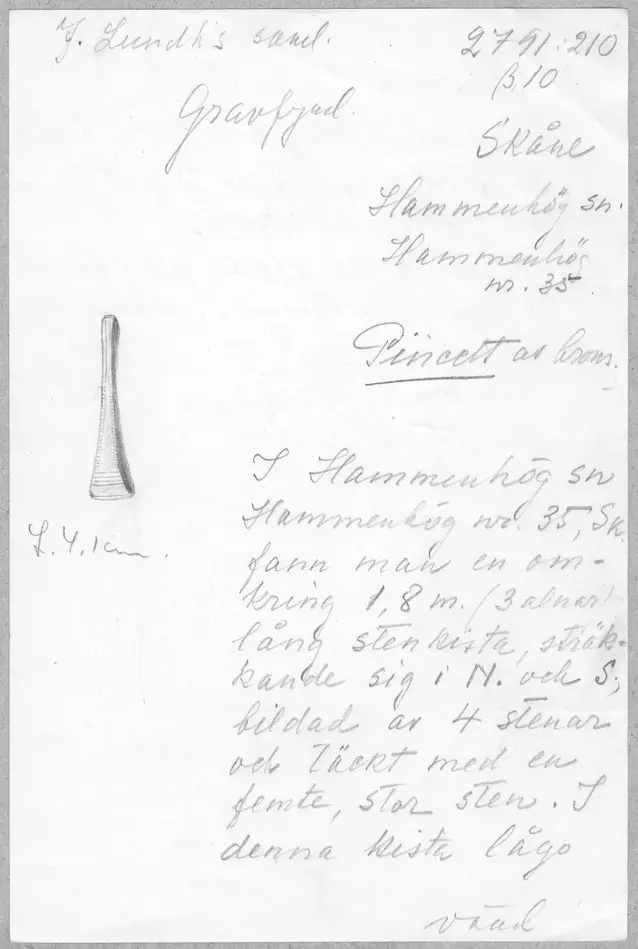 J. Lundh's saml.
2791:210
β10
Gravfynd.
Skåne
Hammenhög sn.
Hammenhög
nr. 35.
Pincett av brons.
I Hammenhög sn
Hammenhög nr. 35, Sk.
fann man en om-
kring 1,8 m. (3 alnar)
L. 4.1 cm.
lång stenkista, sträk-
kande sig i N. och S.,
bildad av 4 stenar
och täckt med en
femte, stor sten. I
denna kista lågo
vänd